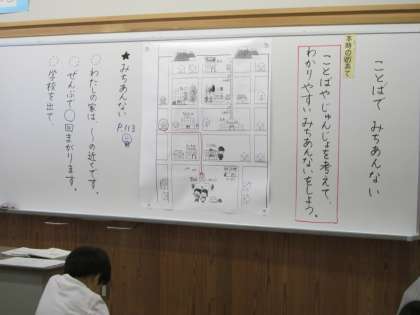 ことばで みちあんない
本時のめあて
ことばや じゅんじょを考えて、
わかりやすい みちあんないをしよう。
★みちあんない
P.113
○わたしの家は、〜の近くです。
○ぜんぶで○回まがります。
○学校を出て、